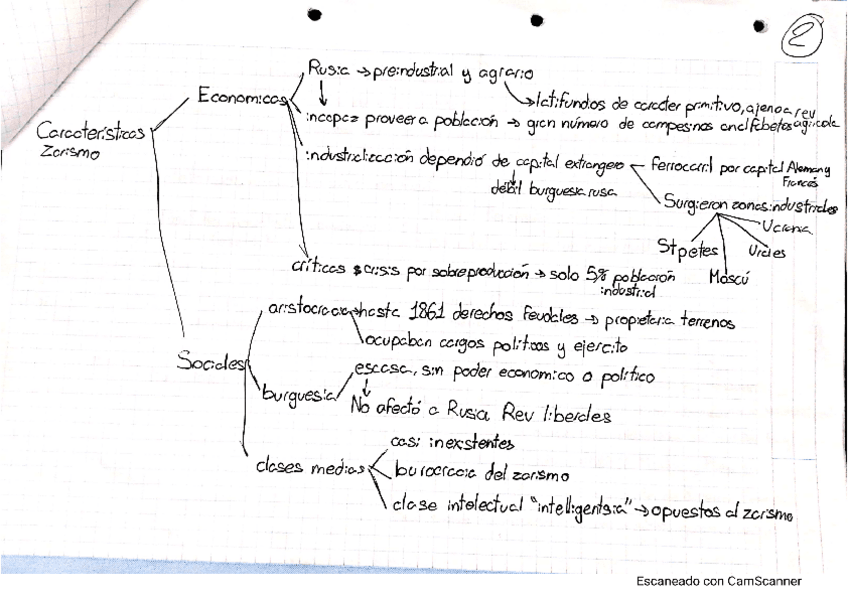 2
Rusia → preindustrial y agrario
Económicas
latifundios de caracter primitivo, ajeno a rev agricola
Características Zarismo
incapaz proveer a población → gran número de campesinos analfabetos
industrialización dependió de capital extrangero
ferrocarril por capital Aleman y Francés
débil burguesia rusa
Surgieron zonas industriales
Ucrania
St petes
Urales
Moscú
críticas crisis por sobreproducción → solo 5% población industrial
aristocracia
hasta 1861 derechos feudales → propietaria terrenos
ocupaban cargos políticos y ejercito
Sociales
escasa, sin poder economico o político
burguesia
No afectó a Rusia Rev liberales
casi inexstentes
clases medias
burocracia del zarismo
clase intelectual "intelligentsia" → opuestos al zarismo
Escaneado con CamScanner